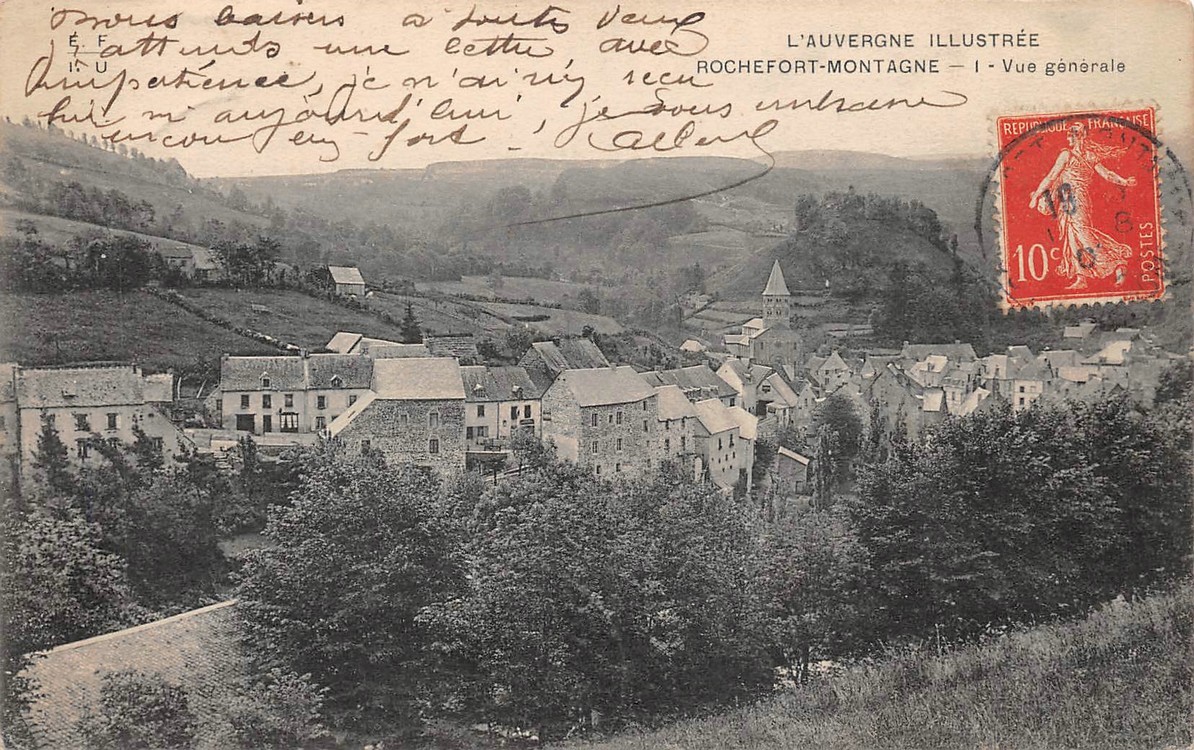 Bons baisers à toutes deux
j'attends une lettre avec
impatience, je n'ai rien reçu
hier ni aujourd'hui, je vous embrasse
encore bien fort. Albert
É F
I U
L'AUVERGNE ILLUSTRÉE
ROCHEFORT-MONTAGNE — 1 - Vue générale
REPUBLIQUE FRANÇAISE
10c
POSTES